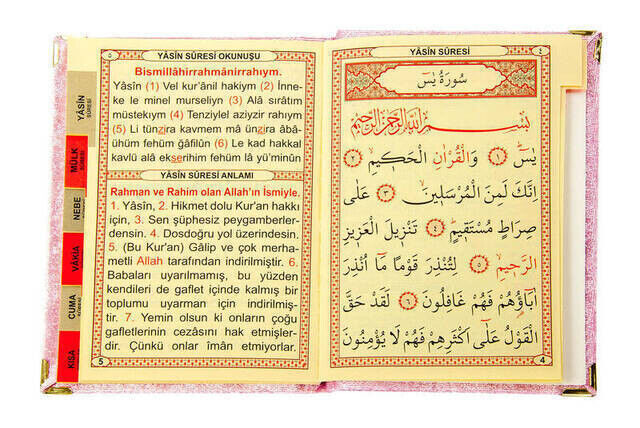 ٥
YÂSİN SÛRESİ OKUNUŞU
Bismillâhirrahmânirrahıym.
Yâsîn (1) Vel kur'ânil hakiym (2) İnne-
ke le minel murseliyn (3) Alâ sırâtım
müstekıym (4) Tenziylel aziyzir rahıym
(5) Li tünzira kavmem mâ ünzira âbâ-
ühüm fehüm ğâfilûn (6) Le kad hakkal
kavlü alâ ekserihim fehüm lâ yü'minûn
YÂSİN SÛRESİ ANLAMI
Rahman ve Rahim olan Allah'ın İsmiyle.
1. Yâsîn, 2. Hikmet dolu Kur'an hakkı
için, 3. Sen şüphesiz peygamberler-
densin. 4. Dosdoğru yol üzerindesin.
5. (Bu Kur'an) Gâlip ve çok merha-
metli Allah tarafından indirilmiştir. 6.
Babaları uyarılmamış, bu yüzden
kendileri de gaflet içinde kalmış bir
toplumu uyarman için indirilmiş-
tir. 7. Yemin olsun ki onların çoğu
gafletlerinin cezasını hak etmişler-
dir. Çünkü onlar îmân etmiyorlar.
5
YÂSİN
SÛRESİ
MÜLK
SÛRESİ
NEBE
VÂKIA
CUMA
KISA
YÂSİN SÛRESİ
٤
سُورَةُ يٰسٓ
بِسْمِ اللّٰهِ الرَّحْمٰنِ الرَّحِيمِ
يٰسٓ ﴿١﴾ وَالْقُرْاٰنِ الْحَكِيمِۙ ﴿٢﴾
اِنَّكَ لَمِنَ الْمُرْسَلِينَۙ ﴿٣﴾ عَلٰى
صِرَاطٍ مُسْتَقِيمٍۜ ﴿٤﴾ تَنْزِيلَ الْعَزِيزِ
الرَّحِيمِۙ ﴿٥﴾ لِتُنْذِرَ قَوْمًا مَٓا اُنْذِرَ
اٰبَٓاؤُ۬هُمْ فَهُمْ غَافِلُونَ ﴿٦﴾ لَقَدْ حَقَّ
الْقَوْلُ عَلٰٓى اَكْثَرِهِمْ فَهُمْ لَا يُؤْمِنُونَ
4